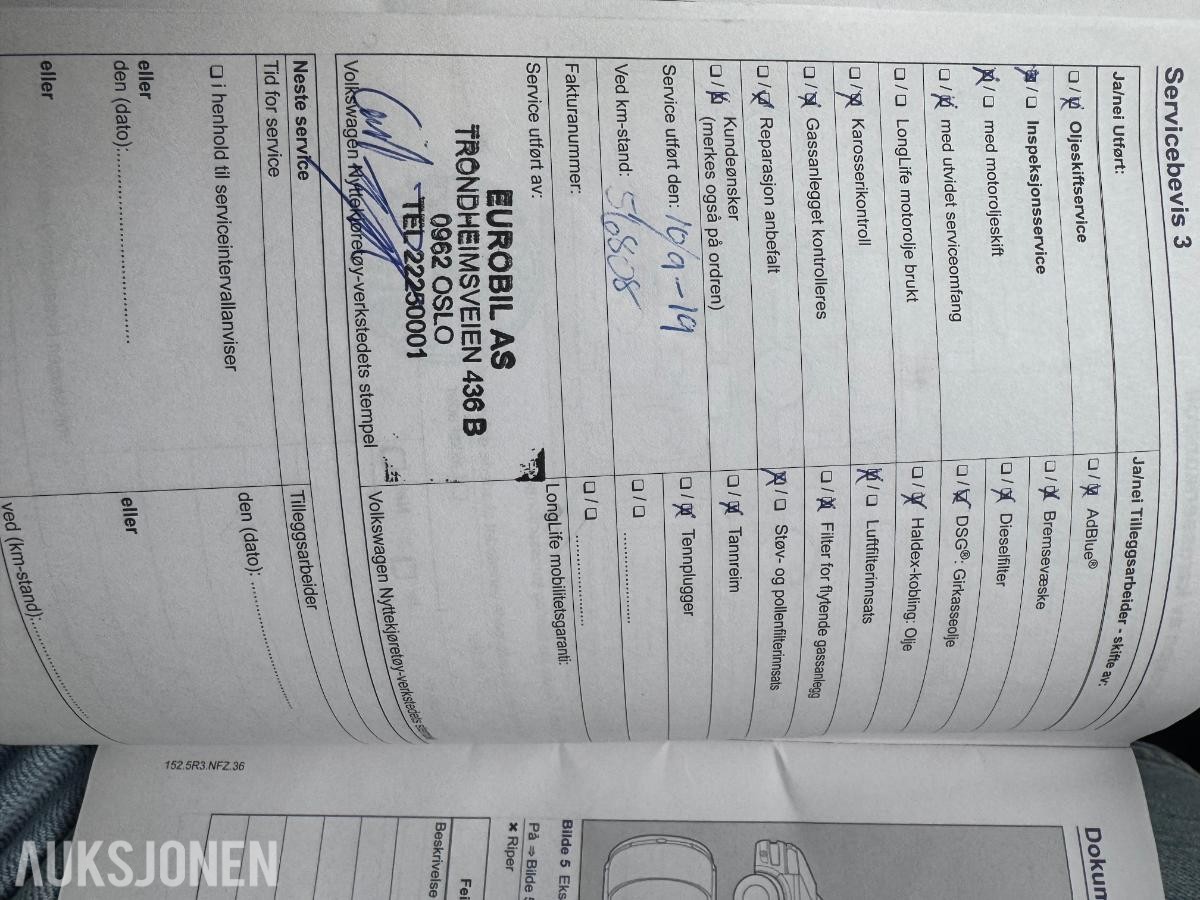 Servicebevis 3
Ja/nei Utført:
☐ / ☒ Oljeskiftservice
☒ / ☐ Inspeksjonsservice
☒ / ☐ med motoroljeskift
☐ / ☒ med utvidet serviceomfang
☐ / ☐ LongLife motorolje brukt
☐ / ☒ Karosserikontroll
☐ / ☒ Gassanlegget kontrolleres
☐ / ☒ Reparasjon anbefalt
☐ / ☒ Kundeønsker
(merkes også på ordren)
Service utført den: 10/9-19
Ved km-stand: 56808
Fakturanummer:
Service utført av:
EUROBIL AS
TRONDHEIMSVEIEN 436 B
0962 OSLO
TEL 22250001
Volkswagen Nyttekjøretøy-verkstedets stempel
Ja/nei Tilleggsarbeider - skifte av:
☐ / ☒ AdBlue®
☐ / ☒ Bremsevæske
☐ / ☒ Dieselfilter
☐ / ☒ DSG®: Girkasseolje
☐ / ☒ Haldex-kobling: Olje
☒ / ☐ Luftfilterinnsats
☐ / ☒ Filter for flytende gassanlegg
☒ / ☐ Støv- og pollenfilterinnsats
☐ / ☒ Tannreim
☐ / ☒ Tennplugger
☐ / ☐ ....................
☐ / ☐ ....................
LongLife mobilitetsgaranti:
Volkswagen Nyttekjøretøy-verkstedets
Neste service
Tid for service
☐ i henhold til serviceintervallanviser
eller
den (dato):..............................
eller
Tilleggsarbeider
den (dato): ....................
eller
ved (km-stand):....................
152.5R3.NFZ.36
Dokum
Bilde 5 Eks
På ⇒ Bilde 5
× Riper
Fei
Beskrivelse
AUKSJONEN